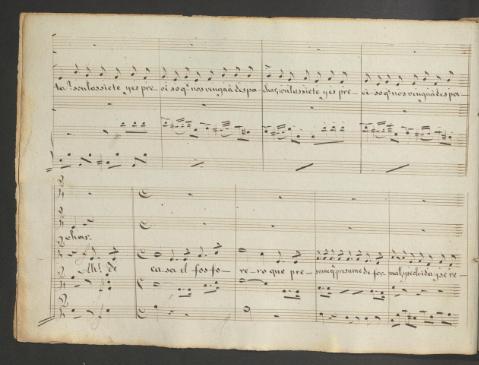 ta? son las siete y es pre- ci so q.e nos vengan à despa- char, son las siete y es pre- ci so q.e nos vengan à despa-
char.
Ah! de casa el fos fo- re- ro que pre- sume q.e presume de for- mal, y se re-